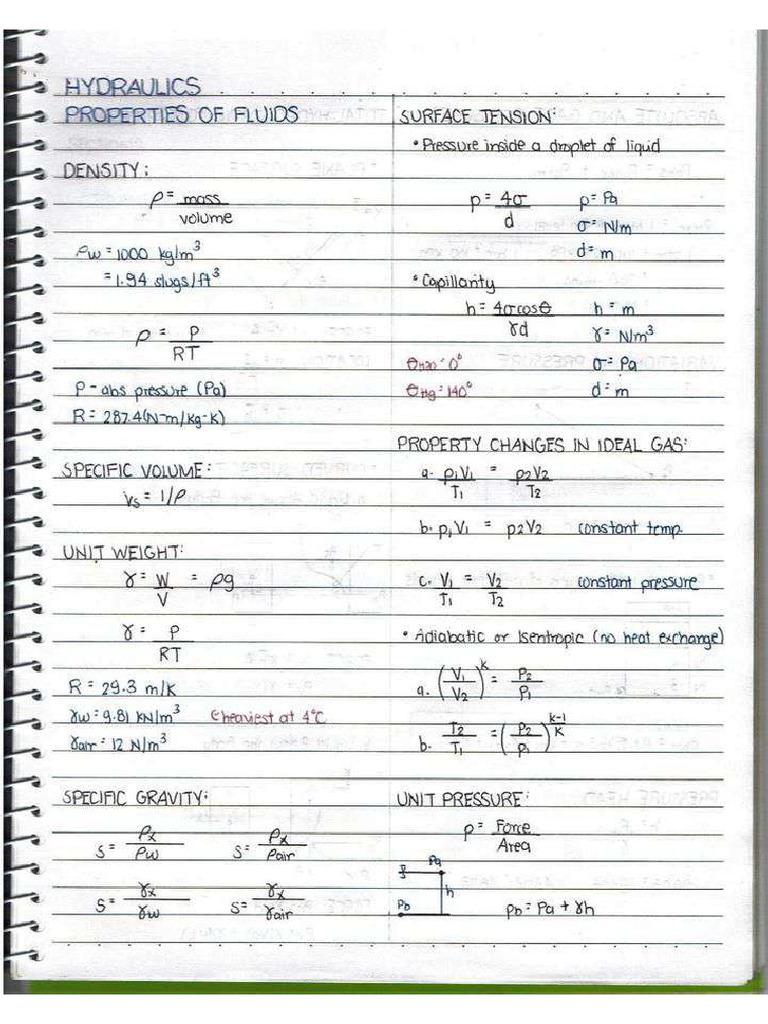 HYDRAULICS
PROPERTIES OF FLUIDS
DENSITY:
ρ = mass / volume
ρw = 1000 kg/m³
= 1.94 slugs/ft³
ρ = P / RT
P - abs pressure (Pa)
R = 287.4(N-m/kg-K)
SPECIFIC VOLUME:
Vs = 1/ρ
UNIT WEIGHT:
γ = W / V = ρg
γ = P / RT
R = 29.3 m/K
γw = 9.81 KN/m³ @heaviest at 4°C
γair = 12 N/m³
SPECIFIC GRAVITY:
S = ρx / ρw S = ρx / ρair
S = γx / γw S = γx / γair
SURFACE TENSION:
• Pressure inside a droplet of liquid
p = 4σ / d p = Pa
σ = N/m
d = m
• Capillarity
h = 4σcosθ / γd h = m
γ = N/m³
θH20 = 0° σ = Pa
θHg = 140° d = m
PROPERTY CHANGES IN IDEAL GAS:
a. p1V1 / T1 = p2V2 / T2
b. p1V1 = p2V2 constant temp.
c. V1 / T1 = V2 / T2 constant pressure
• Adiabatic or Isentropic (no heat exchange)
a. (V1 / V2)^k = P2 / P1
b. T2 / T1 = (P2 / P1)^(k-1 / k)
UNIT PRESSURE:
p = Force / Area
Pa
h
Pb
Pb = Pa + γh